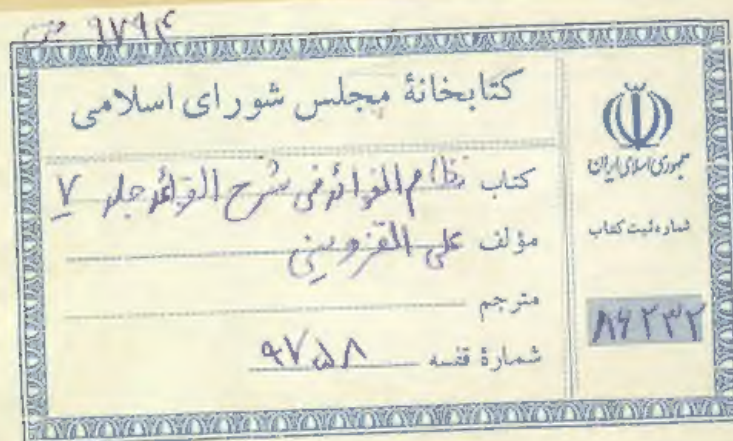 ۹۷۹۴
کتابخانهٔ مجلس شورای اسلامی
کتاب نظام الفوائد فی شرح القواعد جلد ۷
مؤلف علی القزوینی
مترجم
شمارهٔ قفسه ۹۷۵۸
جمهوری اسلامی ایران
شماره ثبت کتاب
۸۶۲۳۲